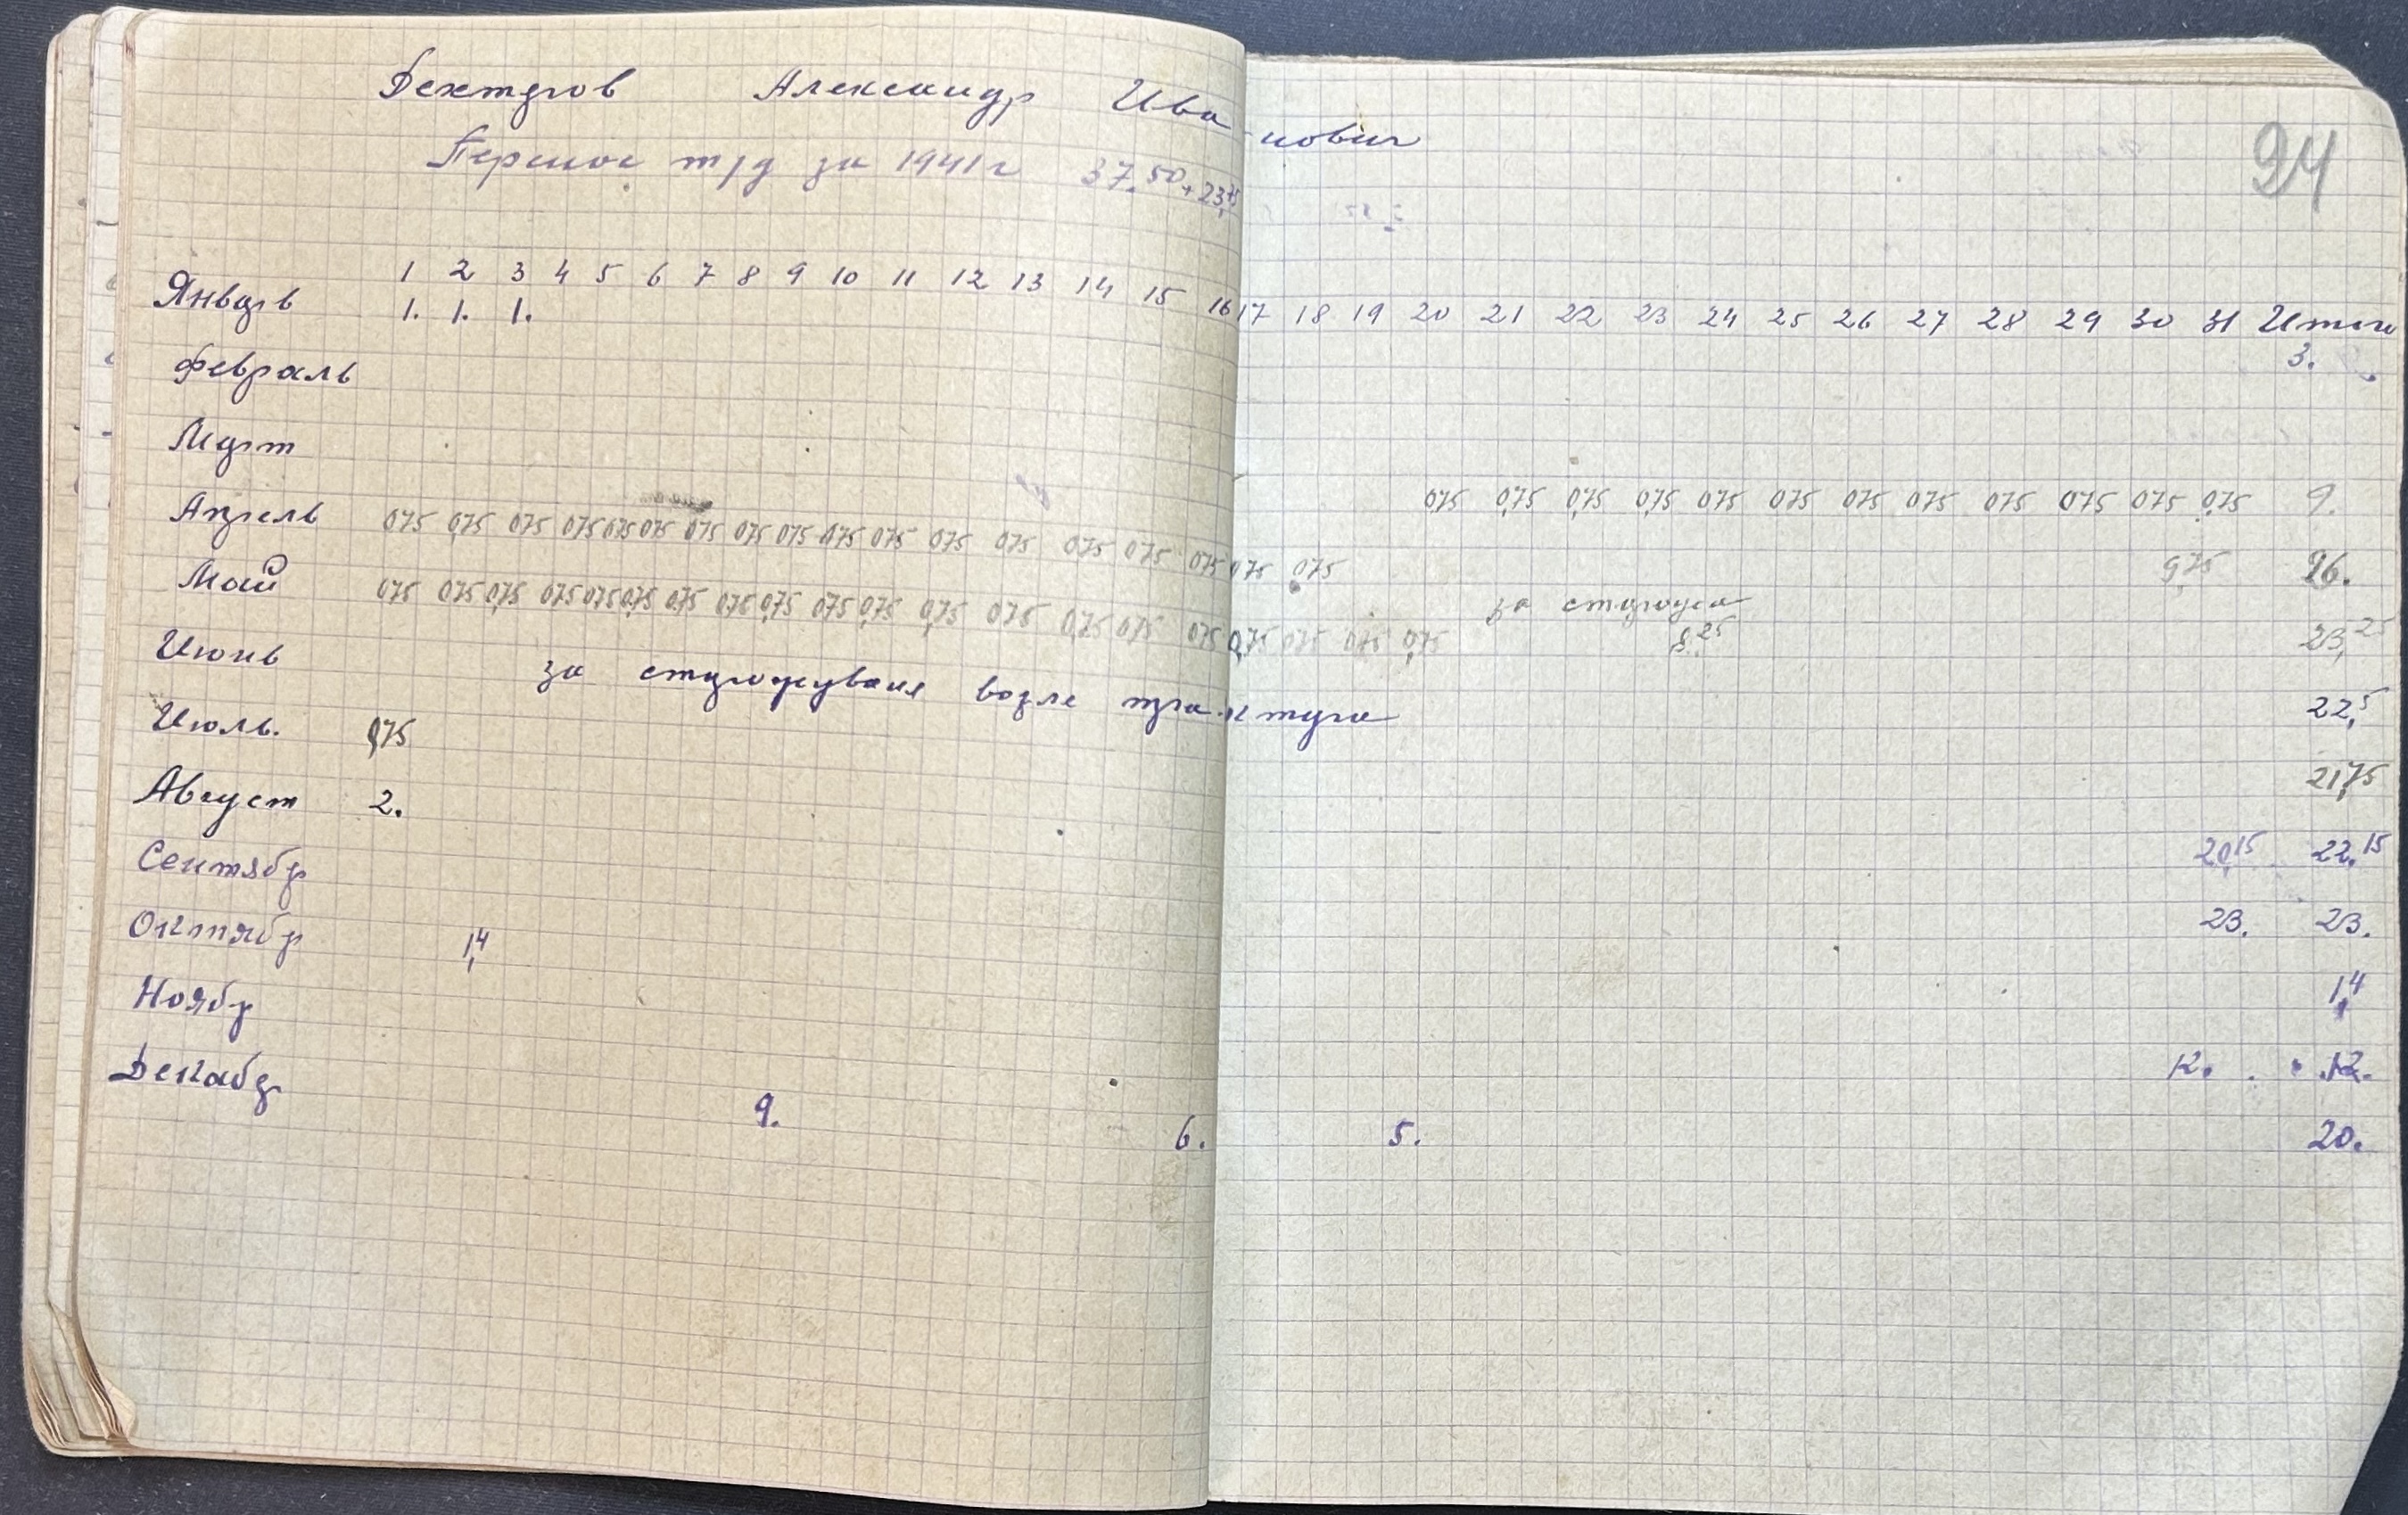 Дехтяров Александр Иванович
94
Перенос т/д за 1941 г 37.50 + 23,75
1 2 3 4 5 6 7 8 9 10 11 12 13 14 15 16 17 18 19 20 21 22 23 24 25 26 27 28 29 30 31 Итого
Январь 1. 1. 1. 3.
Февраль
Март 075 0,75 0,75 0,75 075 075 075 075 075 075 075 0,75 9.
Апрель 075 0,75 075 075 075 075 075 075 075 075 075 075 075 075 075 075 075 075 9,75 26.
Май 075 075 0,75 075 075 0,75 0,75 075 0,75 075 0,75 0,75 075 0,75 075 075 0,75 075 075 0,75 за сторожа 8,25 23,25
Июнь за сторожуваня возле трактура 22,5
Июль. 0,75 21,75
Август 2. 20,15 22,15
Сентябр 23. 23.
Октябр 1,4 1,4
Ноябр 12. 12.
Декабр 9. 6. 5. 20.